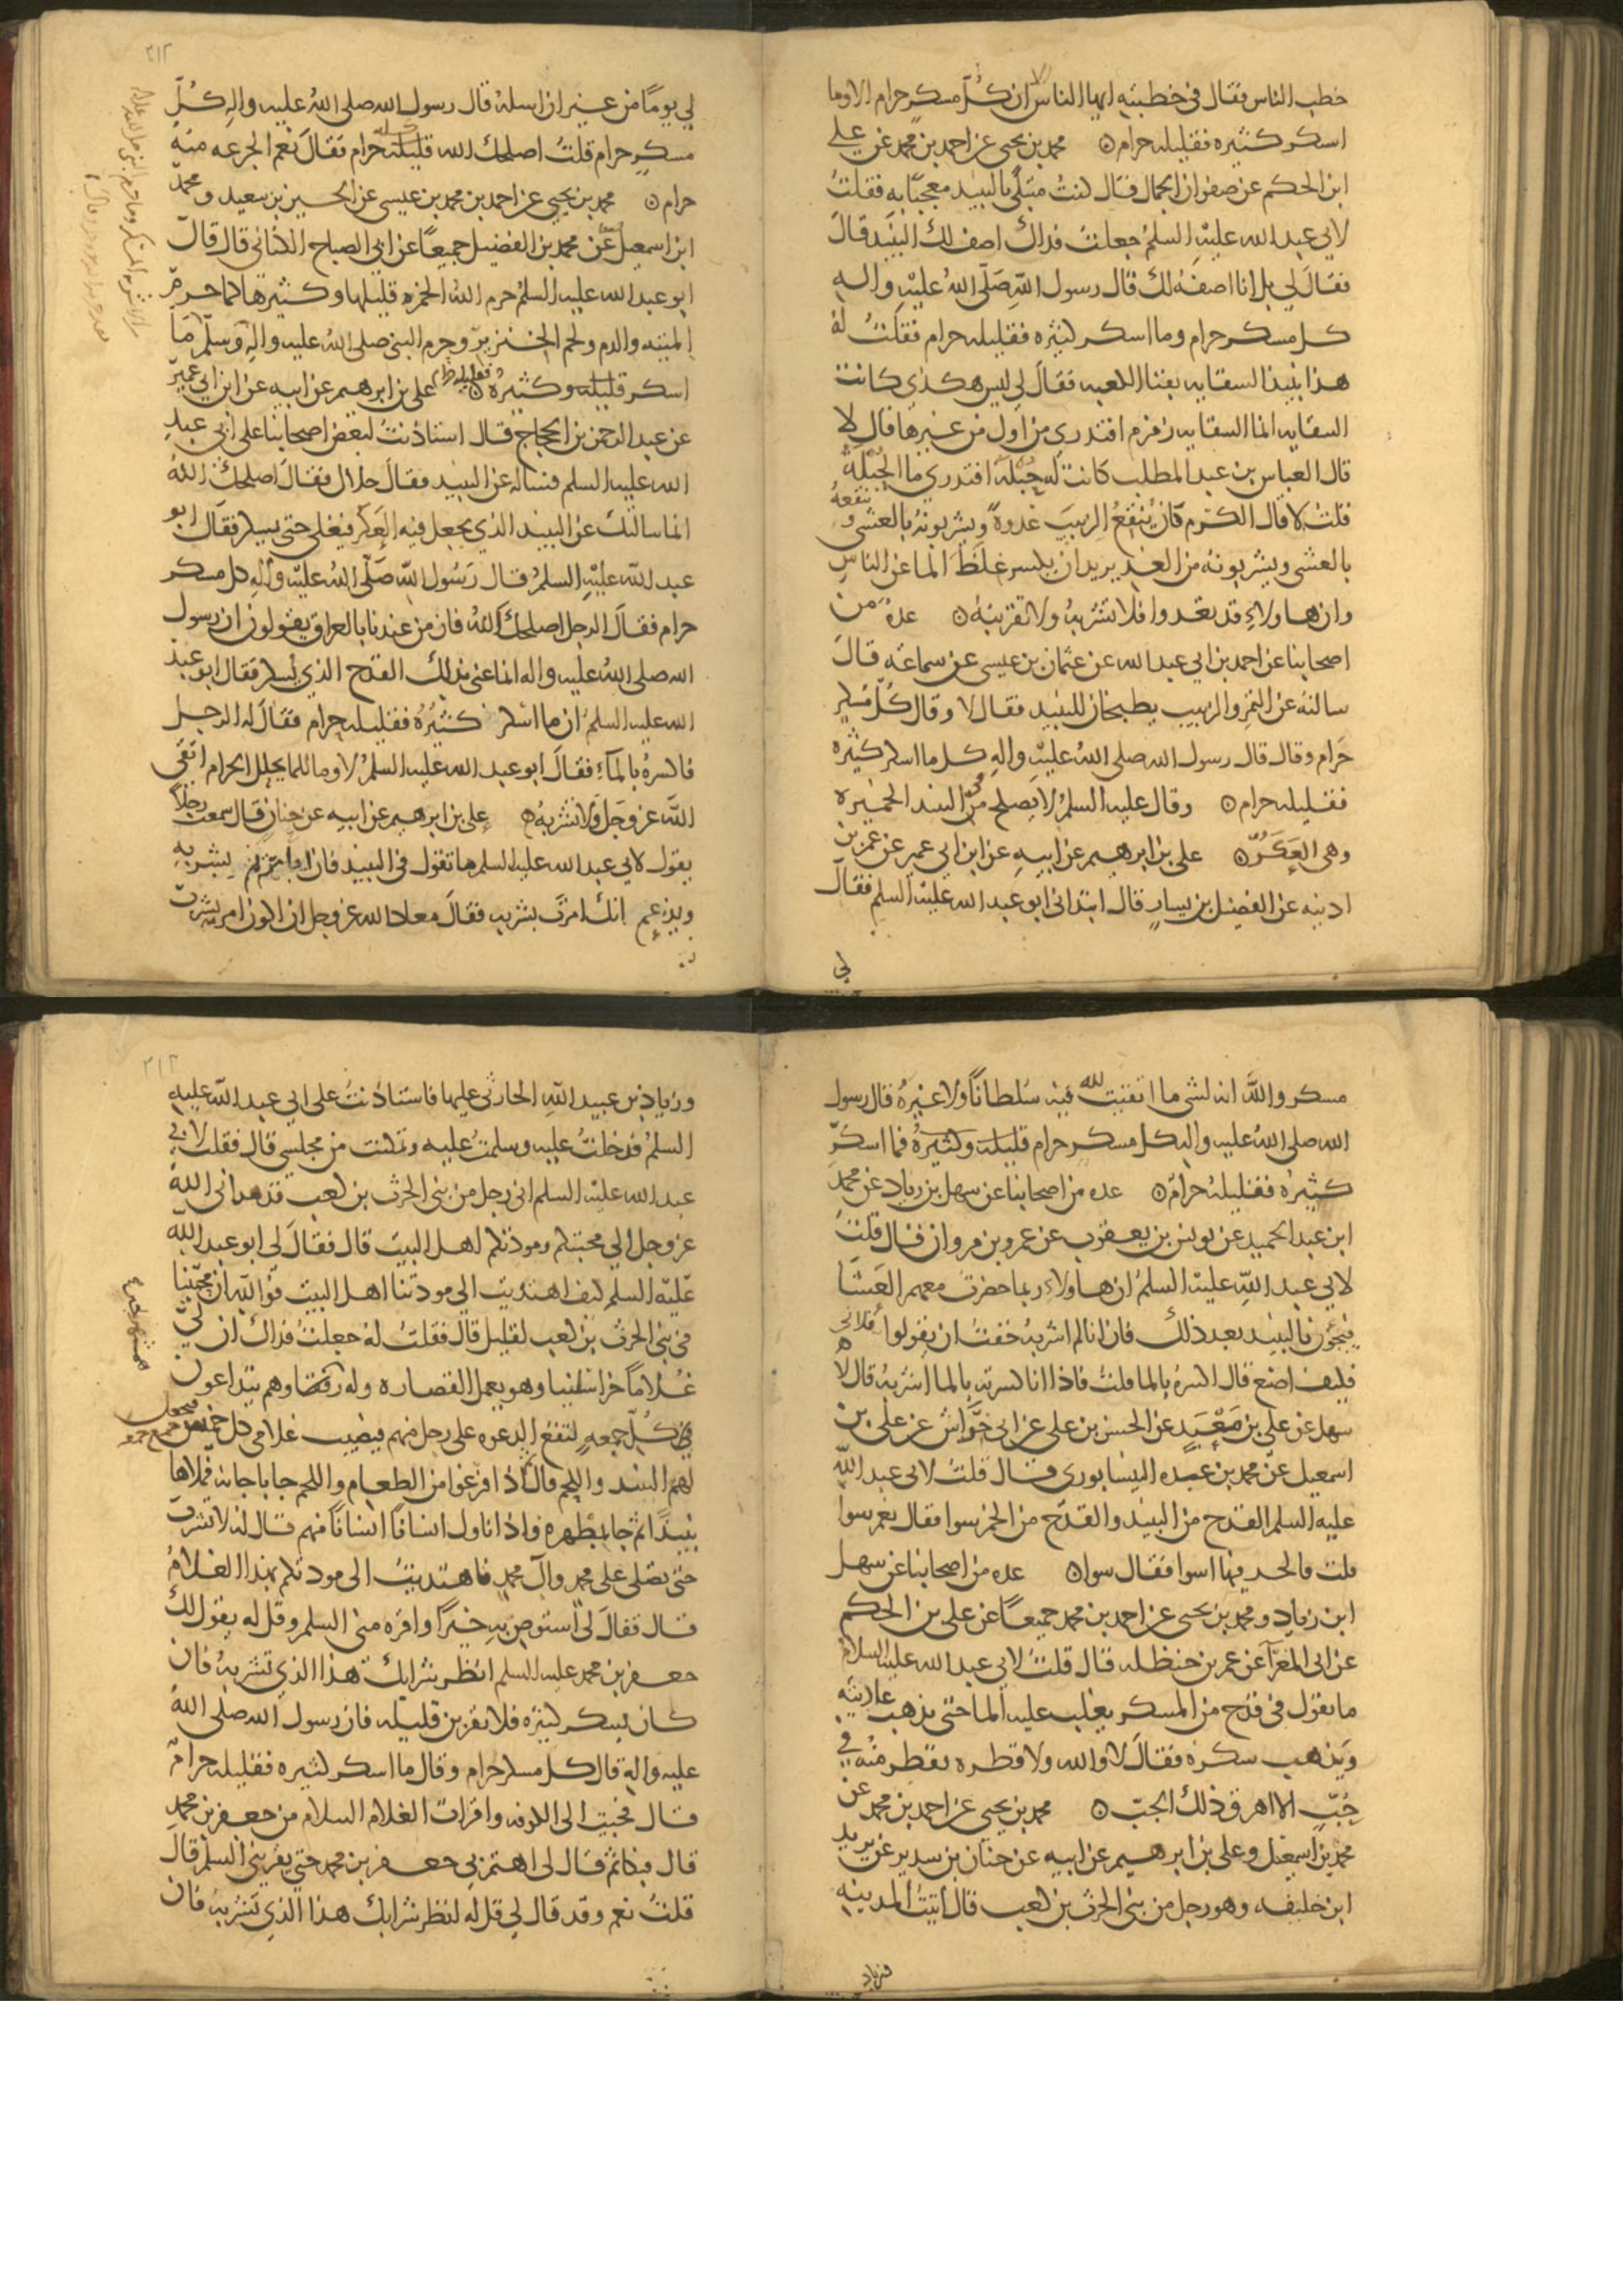 خطب الناس فقال فى خطبته ايها الناس الا ان كل مسكر حرام الا وما
اسكر كثيره فقليله حرام ۝ محمد بن يحيى عن احمد بن محمد عن على
ابن الحكم عن صفوان الجمال قال كنت مبتلى بالنبيذ معجبا به فقلت
لابي عبد الله عليه السلم جعلت فداك اصف لك النبيذ قال
فقال لي بل انا اصفه لك قال رسول الله صلى الله عليه واله
كل مسكر حرام وما اسكر كثيره فقليله حرام فقلت له
هذا نبيذ السقايه بفنا الكعبه فقال لي ليس هكذى كانت
السقايه انما السقايه زمزم افتدرى من اول من غيرها قال لا
قال العباس بن عبد المطلب كانت له حبلة افتدري ما الحبلة
قلت لا قال الكرم كان ينقع الزبيب غدوة ويشربونه بالعشى وينقعه
بالعشى ويشربونه من الغد يريد ان يكسر غلظ الما عن الناس
وان هاولاء قد تعدوا فلا تشربه ولا تقربنه ۝ عده من
اصحابنا عن احمد بن ابي عبد الله عن عثمان بن عيسى عن سماعه قال
سالته عن التمر والزبيب يطبخان للنبيذ فقال لا وقال كل مسكر
حرام وقال قال رسول الله صلى الله عليه واله كل ما اسكر كثيره
فقليله حرام ۝ وقال عليه السلم لا يصلح فى النبيذ الخميره
وهى العكر ۝ على بن ابرهيم عن ابيه عن ابن ابي عمير عن عمر بن
اذينه عن الفضيل بن يسار قال ابتدانى ابو عبد الله عليه السلم فقال
لي
لي يوما من غير ان اسله قال رسول الله صلى الله عليه واله كل
مسكر حرام قلت اصلحك الله قليله كله حرام فقال نعم الجرعه منه
حرام ۝ محمد بن يحيى عن احمد بن محمد بن عيسى عن الحسين بن سعيد ومحمد
ابن اسمعيل عن محمد بن الفضيل جميعا عن ابي الصباح الكنانى قال قال
ابو عبد الله عليه السلم حرم الله الخمره قليلها وكثيرها كما حرم
الميته والدم ولحم الخنزير وحرم النبى صلى الله عليه واله وسلم ما
اسكر قليله وكثيره ۝ على بن ابرهيم عن ابيه عن ابن ابي عمير
عن عبد الرحمن بن الحجاج قال استاذنت لبعض اصحابنا على ابي عبد
الله عليه السلم فساله عن النبيذ فقال حلال فقال اصلحك الله
انما سالتك عن النبيذ الذي يجعل فيه العكر فيغلى حتى يسكر فقال ابو
عبد الله عليه السلم قال رسول الله صلى الله عليه واله كل مسكر
حرام فقال الرجل اصلحك الله فان من عندنا بالعراق يقولون ان رسول
الله صلى الله عليه واله انما عنى بذلك القدح الذي يسكر فقال ابو عبد
الله عليه السلم ان ما اسكر كثيره فقليله حرام فقال له الرجل
فاكسره بالماء فقال ابو عبد الله عليه السلم لا وما للما يحلل الحرام اتقى
الله عز وجل ولا تشربه ۝ على بن ابرهيم عن ابيه عن حنان قال سمعت رجلا
يقول لابي عبد الله عليه السلم ما تقول فى النبيذ فان ابا مريم يشربه
ويزعم انك امرت بشربه فقال معاذ الله عز وجل ان اكون امر بشرب
مسكر والله انه لشى ما اتقيت لله فيه سلطانا ولا غيره قال رسول
الله صلى الله عليه واله كل مسكر حرام قليله وكثيره فما اسكر
كثيره فقليله حرام ۝ عده من اصحابنا عن سهل بن زياد عن محمد
ابن عبد الحميد عن يونس بن يعقوب عن عمرو بن مروان قال قلت
لابي عبد الله عليه السلم ان هاولاء ربما حضرت معهم العشا
فيجون بالنبيذ بعد ذلك فان انا لم اشربه خفت ان يقولوا فلانى
فكيف اصنع قال اكسره بالما قلت فاذا انا كسرته بالما اشربه قال لا
سهل عن على بن معبد عن الحسن بن على عن ابي خواش عن على بن
اسمعيل عن محمد بن عبده النيسابورى قال قلت لابي عبد الله
عليه السلم القدح من النبيذ والقدح من الخمر سوا فقال نعم سوا
قلت فالحد فيها سوا فقال سوا ۝ عده من اصحابنا عن سهل
ابن زياد ومحمد بن يحيى عن احمد بن محمد جميعا عن على بن الحكم
عن ابى المغرا عن عمر بن حنظله قال قلت لابي عبد الله عليه السلام
ما تقول فى قدح من المسكر يغلب عليه الما حتى يذهب عاديته
ويذهب سكره فقال لا والله ولا قطره تقطر منه فى
حب الا اهرق ذلك الحب ۝ محمد بن يحيى عن احمد بن محمد عن
محمد بن اسمعيل وعلى بن ابرهيم عن ابيه عن حنان بن سدير عن يزيد
ابن خليفه وهو رجل من بنى الحرث بن كعب قال اتيت المدينه
وزياد
وزياد بن عبيد الله الحارثى عليها فاستاذنت على ابي عبد الله عليه
السلم فدخلت عليه وسلمت عليه وتمكنت من مجلسي قال فقلت لابي
عبد الله عليه السلم انى رجل من بنى الحرث بن كعب قد هدانى الله
عز وجل الي محبتكم ومودتكم اهل البيت قال فقال لى ابو عبد الله
عليه السلم كيف اهتديت الي مودتنا اهل البيت فوالله ان محبينا
فى بنى الحرث بن كعب لقليل قال فقلت له جعلت فداك ان لى
غلاما خراسانيا وهو يعمل القصاره وله رفقا وهم يتداعون
فى كل جمعه لتقع الدعوه على رجل منهم فيصيب غلامى كل خمس جمع فيجعل
لهم النبيذ واللحم قال ثم اذا فرغوا من الطعام واللحم جا باجانه فملاها
نبيذا ثم جا بمطهره فاذا ناول انسانا انسانا منهم قال له لا تشرب
حتى تصلى على محمد وآل محمد فاهتديت الى مودتكم بهذا الغلام
قال فقال لى استوص به خيرا واقره منى السلم وقل له يقول لك
جعفر بن محمد عليه السلم انظر شرابك هذا الذي تشربه فان
كان يسكر كثيره فلا تقربن قليله فان رسول الله صلى الله
عليه واله قال كل مسكر حرام وقال ما اسكر كثيره فقليله حرام
قال فجيت الى الكوفه واقرات الغلام السلام من جعفر بن محمد
قال فبكا ثم قال لى اهتم بي جعفر بن محمد حتى يقرينى السلم قال
قلت نعم وقد قال لي قل له انظر شرابك هذا الذي تشربه فان